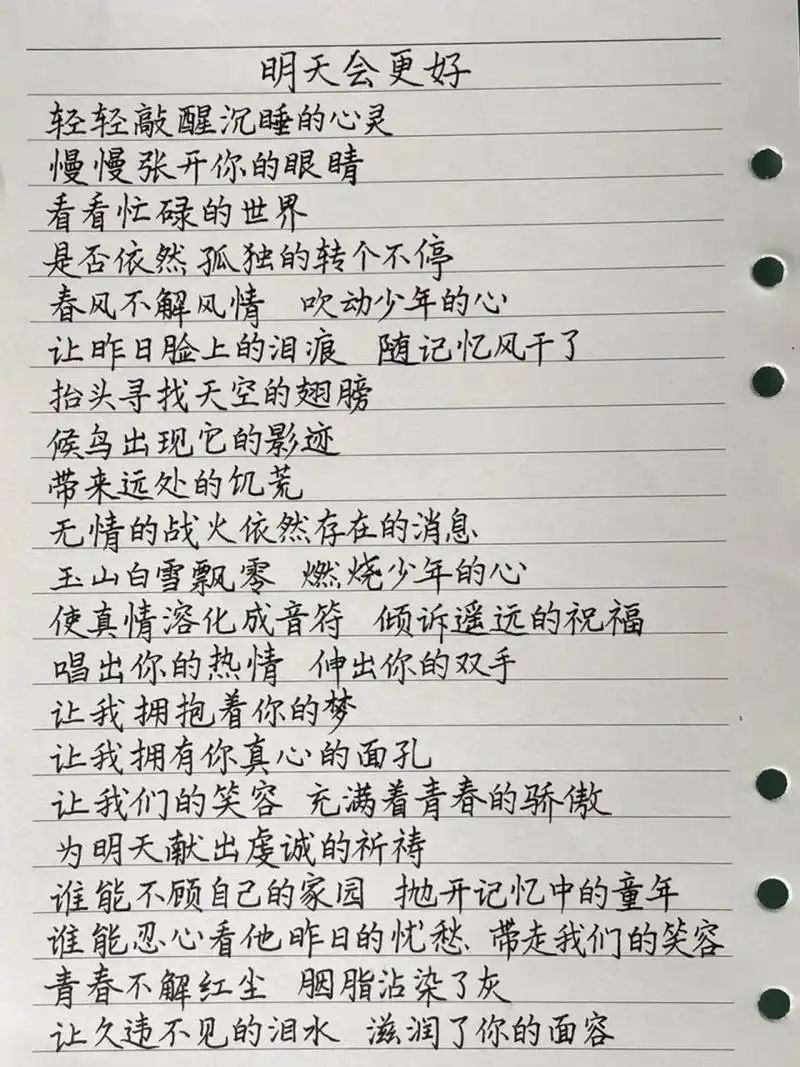 明天会更好
轻轻敲醒沉睡的心灵
慢慢张开你的眼睛
看看忙碌的世界
是否依然孤独的转个不停
春风不解风情 吹动少年的心
让昨日脸上的泪痕 随记忆风干了
抬头寻找天空的翅膀
候鸟出现它的影迹
带来远处的饥荒
无情的战火依然存在的消息
玉山白雪飘零 燃烧少年的心
使真情溶化成音符 倾诉遥远的祝福
唱出你的热情 伸出你的双手
让我拥抱着你的梦
让我拥有你真心的面孔
让我们的笑容 充满着青春的骄傲
为明天献出虔诚的祈祷
谁能不顾自己的家园 抛开记忆中的童年
谁能忍心看他昨日的忧愁 带走我们的笑容
青春不解红尘 胭脂沾染了灰
让久违不见的泪水 滋润了你的面容